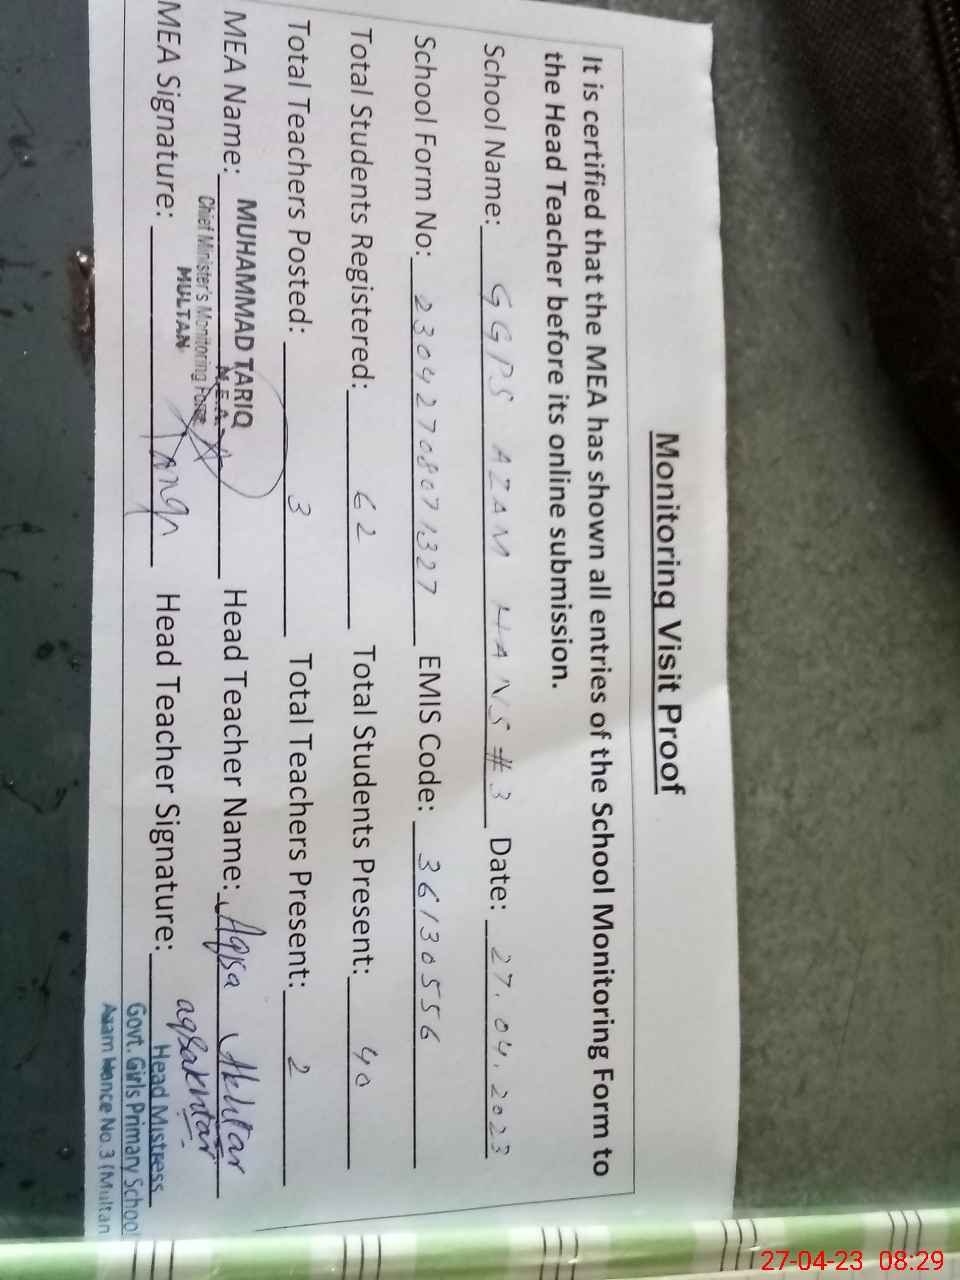 Monitoring Visit Proof
It is certified that the MEA has shown all entries of the School Monitoring Form to
the Head Teacher before its online submission.
School Name: GGPS AZAM HANS # 3 Date: 27.04.2023
School Form No: 23042708071327 EMIS Code: 36130556
Total Students Registered: 62 Total Students Present: 40
Total Teachers Posted: 3 Total Teachers Present: 2
MEA Name: MUHAMMAD TARIQ Head Teacher Name: Aqsa Akhtar
M.E.A.
Chief Minister's Monitoring Force
MULTAN
MEA Signature: Head Teacher Signature: aqsakhtar
Head Mistress
Govt. Girls Primary School
Azam Hance No.3 (Multan
27-04-23 08:29